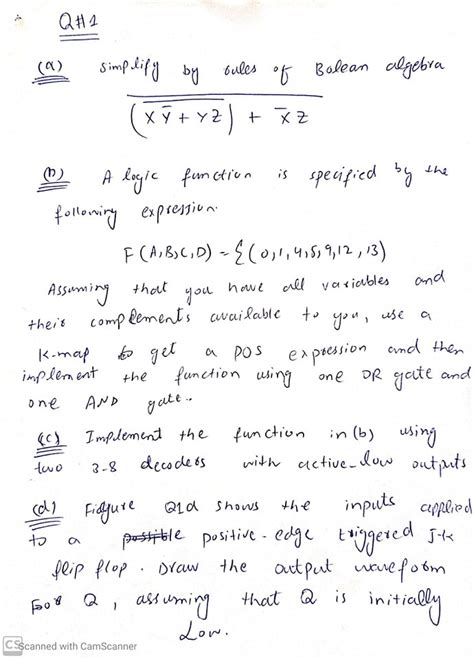 Q#1
(a) Simplify by rules of Bolean algebra
\overline{\overline{(X\overline{Y} + YZ)} + \overline{X}Z}
(b) A logic function is specified by the
following expression.
F(A,B,C,D) = Σ(0,1,4,5,9,12,13)
Assuming that you have all variables and
their complements available to you, use a
K-map to get a POS expression and then
implement the function using one OR gate and
one AND gate.
(c) Implement the function in (b) using
two 3-8 decoders with active-low outputs
(d) Figure Q1d shows the inputs applied
to a positive-edge triggered J-K
flip flop. Draw the output waveform
For Q, assuming that Q is initially
Low.
CS Scanned with CamScanner